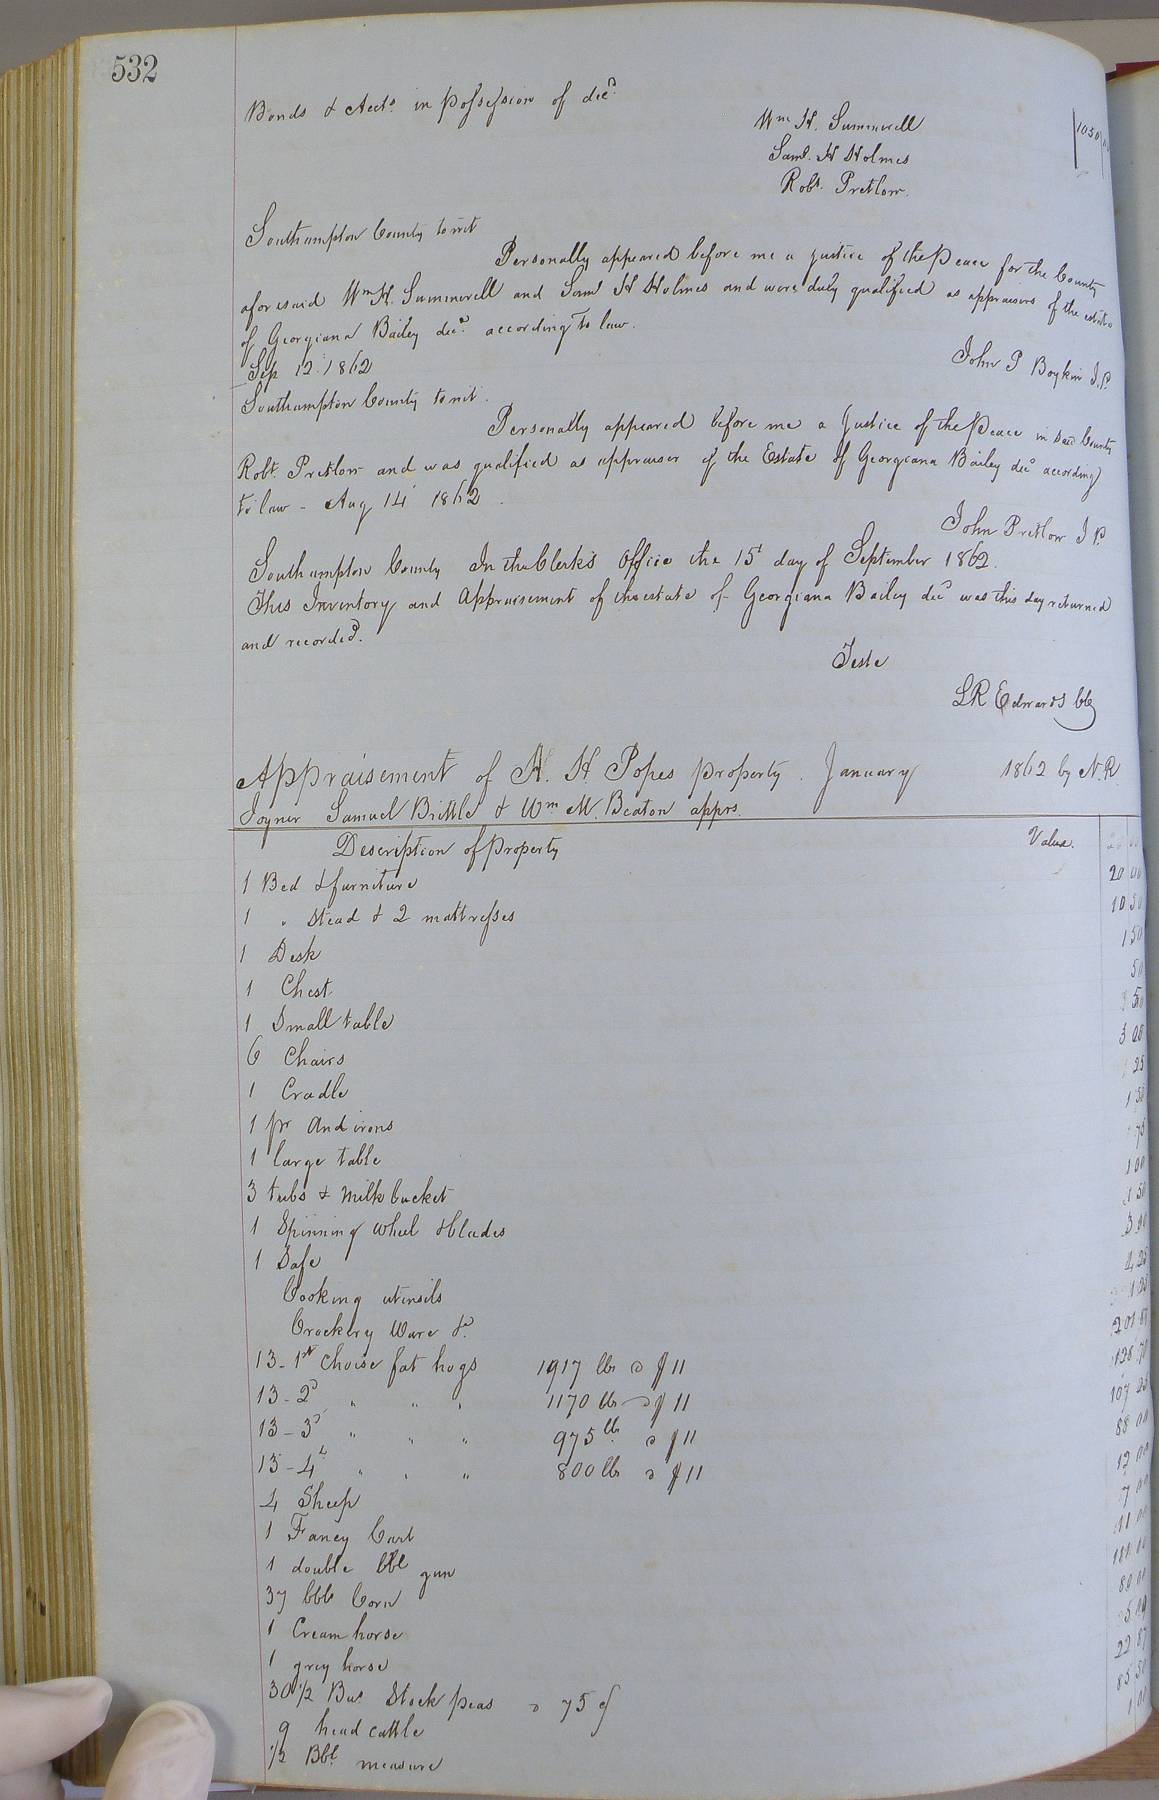 532
Bonds & Accts in possession of decd
Wm H. Summerell
Saml. H Holmes
Robt. Pretlow.
1050
Southampton County to wit
Personally appeared before me a justice of the Peace for the County
aforesaid Wm H. Summerell and Saml H Holmes and were duly qualified as appraisers of the estate
of Georgiana Bailey decd. according to law.
Sep 12. 1862
John P Boykin J.P.
Southampton County to wit.
Personally appeared before me a Justice of the Peace in said County
Robt. Pretlow and was qualified as appraiser of the Estate of Georgeana Bailey decd according
to law - Aug 14 1862.
John Pretlow J P.
Southampton County In the Clerk's Office the 15t day of September 1862.
This Inventory and Appraisement of the estate of Georgiana Bailey decd was this day returned
and recorded.
Teste
LR Edwards clk
Appraisement of A. H. Popes property. January 1862 by N. R.
Joyner Samuel Brittle & Wm M. Beaton apprs.
Description of property Value.
1 Bed & furniture 20 00
1 " Stead & 2 mattresses 10 50
1 Desk 1 50
1 Chest 50
1 Small table 50
6 Chairs 3 00
1 Cradle 25
1 pr And irons 1 50
1 large table 75
3 tubs & milk bucket 1 00
1 Spinning wheel & blades 50
1 Safe 3
Cooking utensils 25
Crockery Ware &c
13 - 1st choise fat hogs 1917 lbs @ $11
13 - 2d " " " 1170 lbs @ $11 128 70
13 - 3d " " " 975 lbs @ $11 107 25
13 - 4th " " " 800 lbs @ $11 88 00
4 Sheep 12 00
1 Fancy Cart 7 00
1 double bbl gun 11 00
37 bbls Corn
1 Cream horse 80 00
1 grey horse
30 1/2 Bus Stock peas @ 75 c 22 87
9 head cattle 85 50
1/2 Bbl. measure 1 00